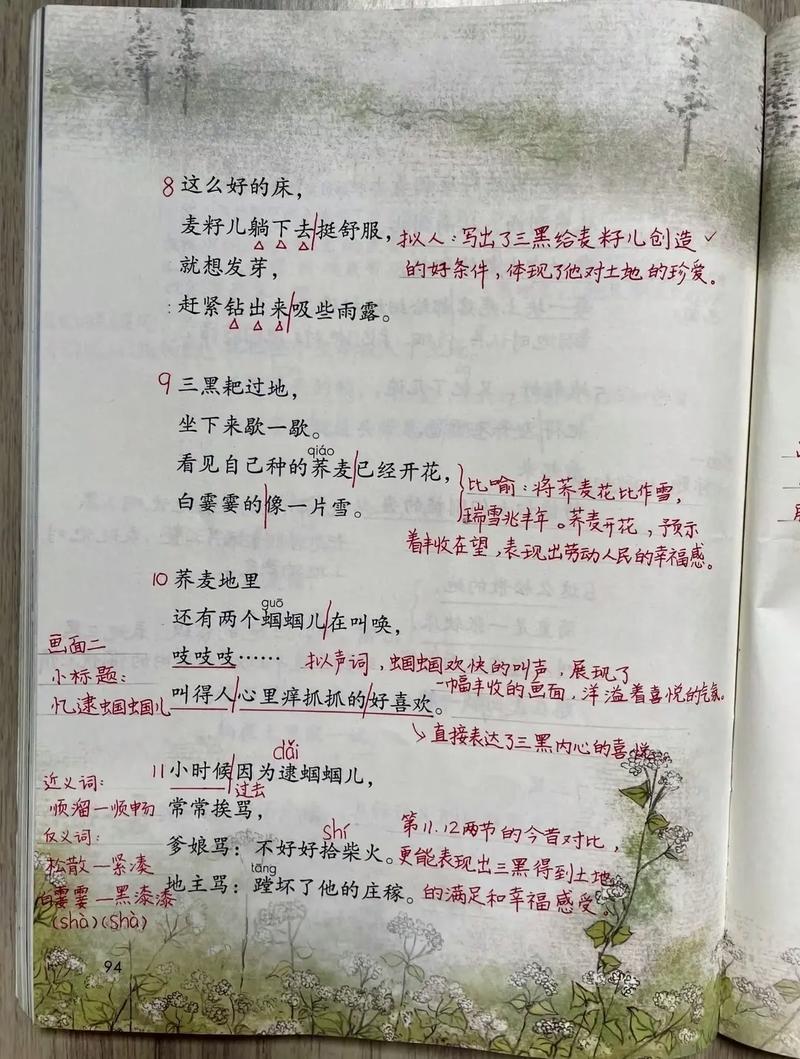 8 这么好的床，
麦籽儿躺下去挺舒服，
拟人：写出了三黑给麦籽儿创造✓
就想发芽，
的好条件，体现了他对土地的珍爱。
赶紧钻出来吸些雨露。
9 三黑耙过地，
坐下来歇一歇。
qiáo
看见自己种的荞麦已经开花，
白霎霎的像一片雪。
比喻：将荞麦花比作雪，
瑞雪兆丰年。荞麦开花，预示
着丰收在望，表现出劳动人民的幸福感。
10 荞麦地里
guō
还有两个蝈蝈儿在叫唤，
吱吱吱……
拟声词，蝈蝈欢快的叫声，展现了
一幅丰收的画面，洋溢着喜悦的气氛。
叫得人心里痒抓抓的好喜欢。
直接表达了三黑内心的喜悦
画面二
小标题：
忆逮蝈蝈儿
dǎi
11 小时候因为逮蝈蝈儿，
过去
常常挨骂，
shí
爹娘骂：不好好拾柴火。
tāng
地主骂：蹚坏了他的庄稼。
第11.12两节的今昔对比，
更能表现出三黑得到土地
的满足和幸福感受。
近义词：
顺溜—顺畅
反义词：
松散—紧凑
白霎霎—黑漆漆
(shà)(shà)
94